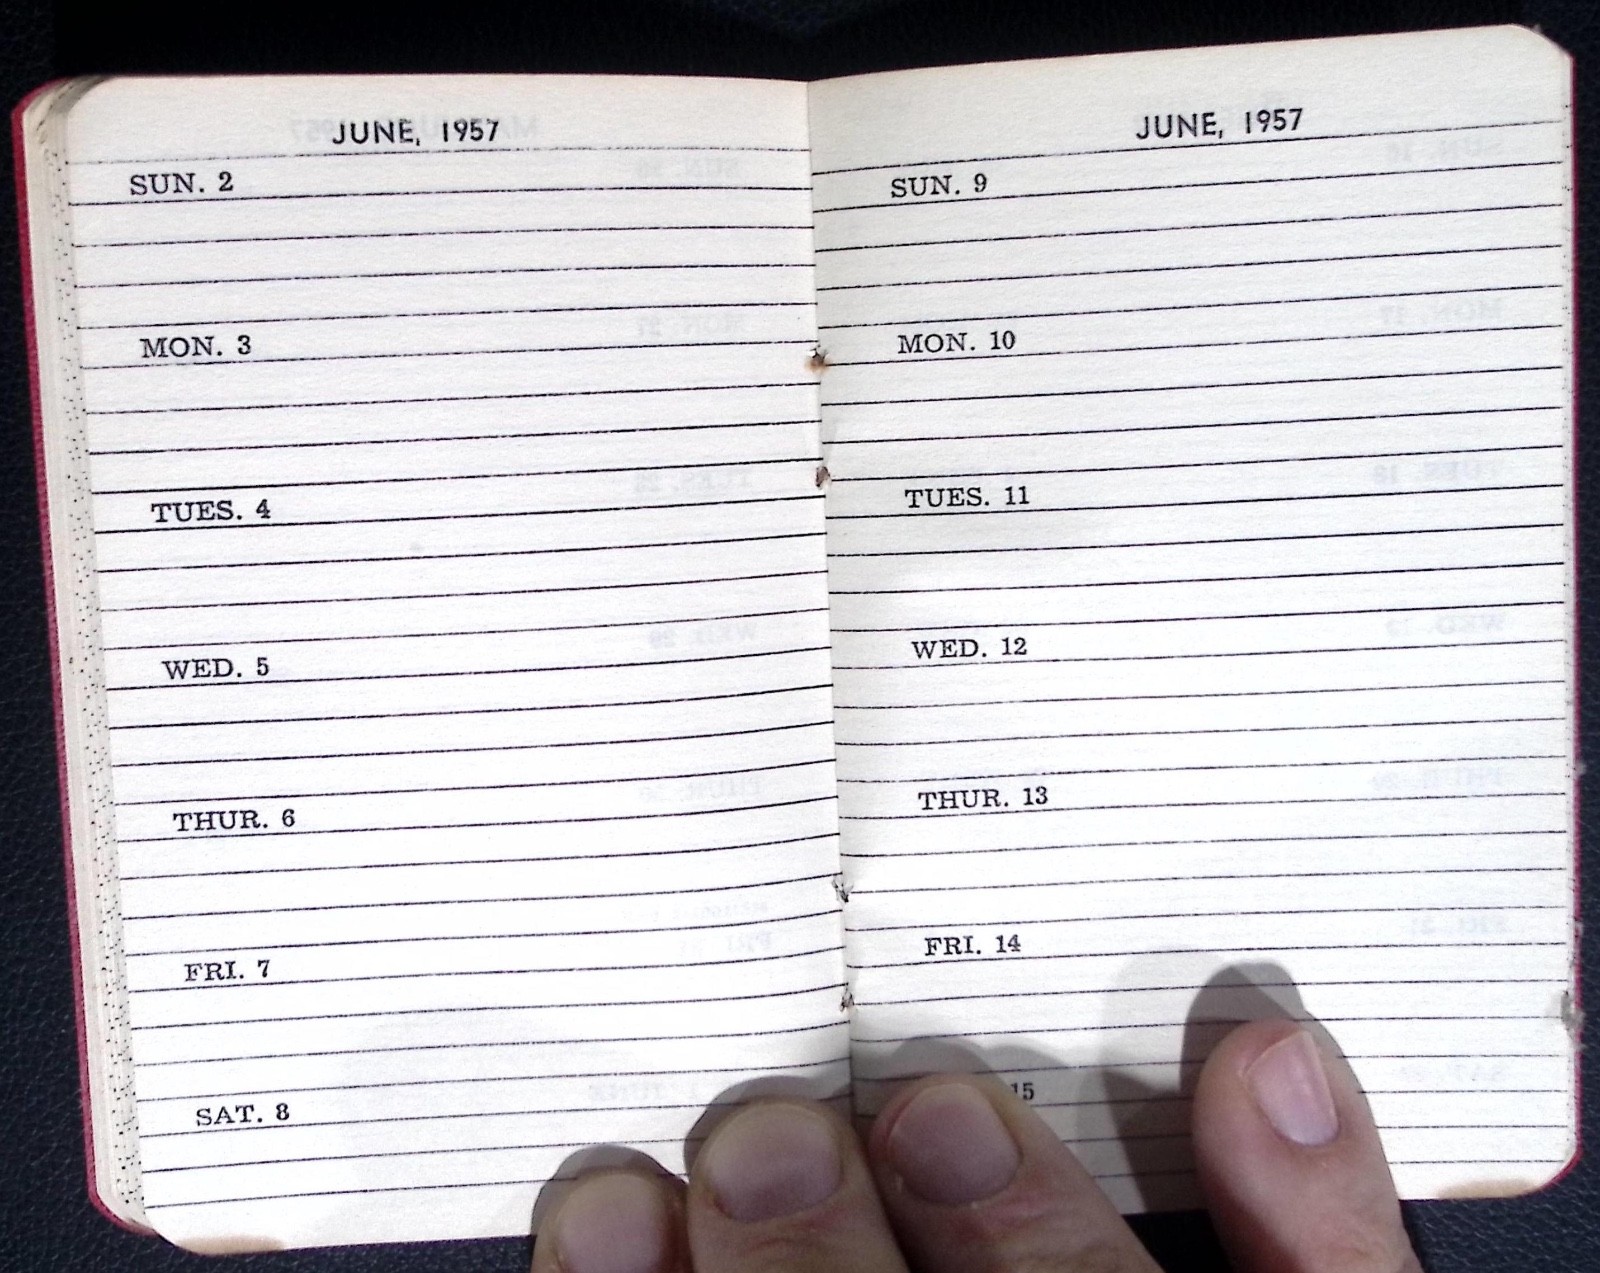 JUNE, 1957
SUN. 2
MON. 3
TUES. 4
WED. 5
THUR. 6
FRI. 7
SAT. 8
JUNE, 1957
SUN. 9
MON. 10
TUES. 11
WED. 12
THUR. 13
FRI. 14
15